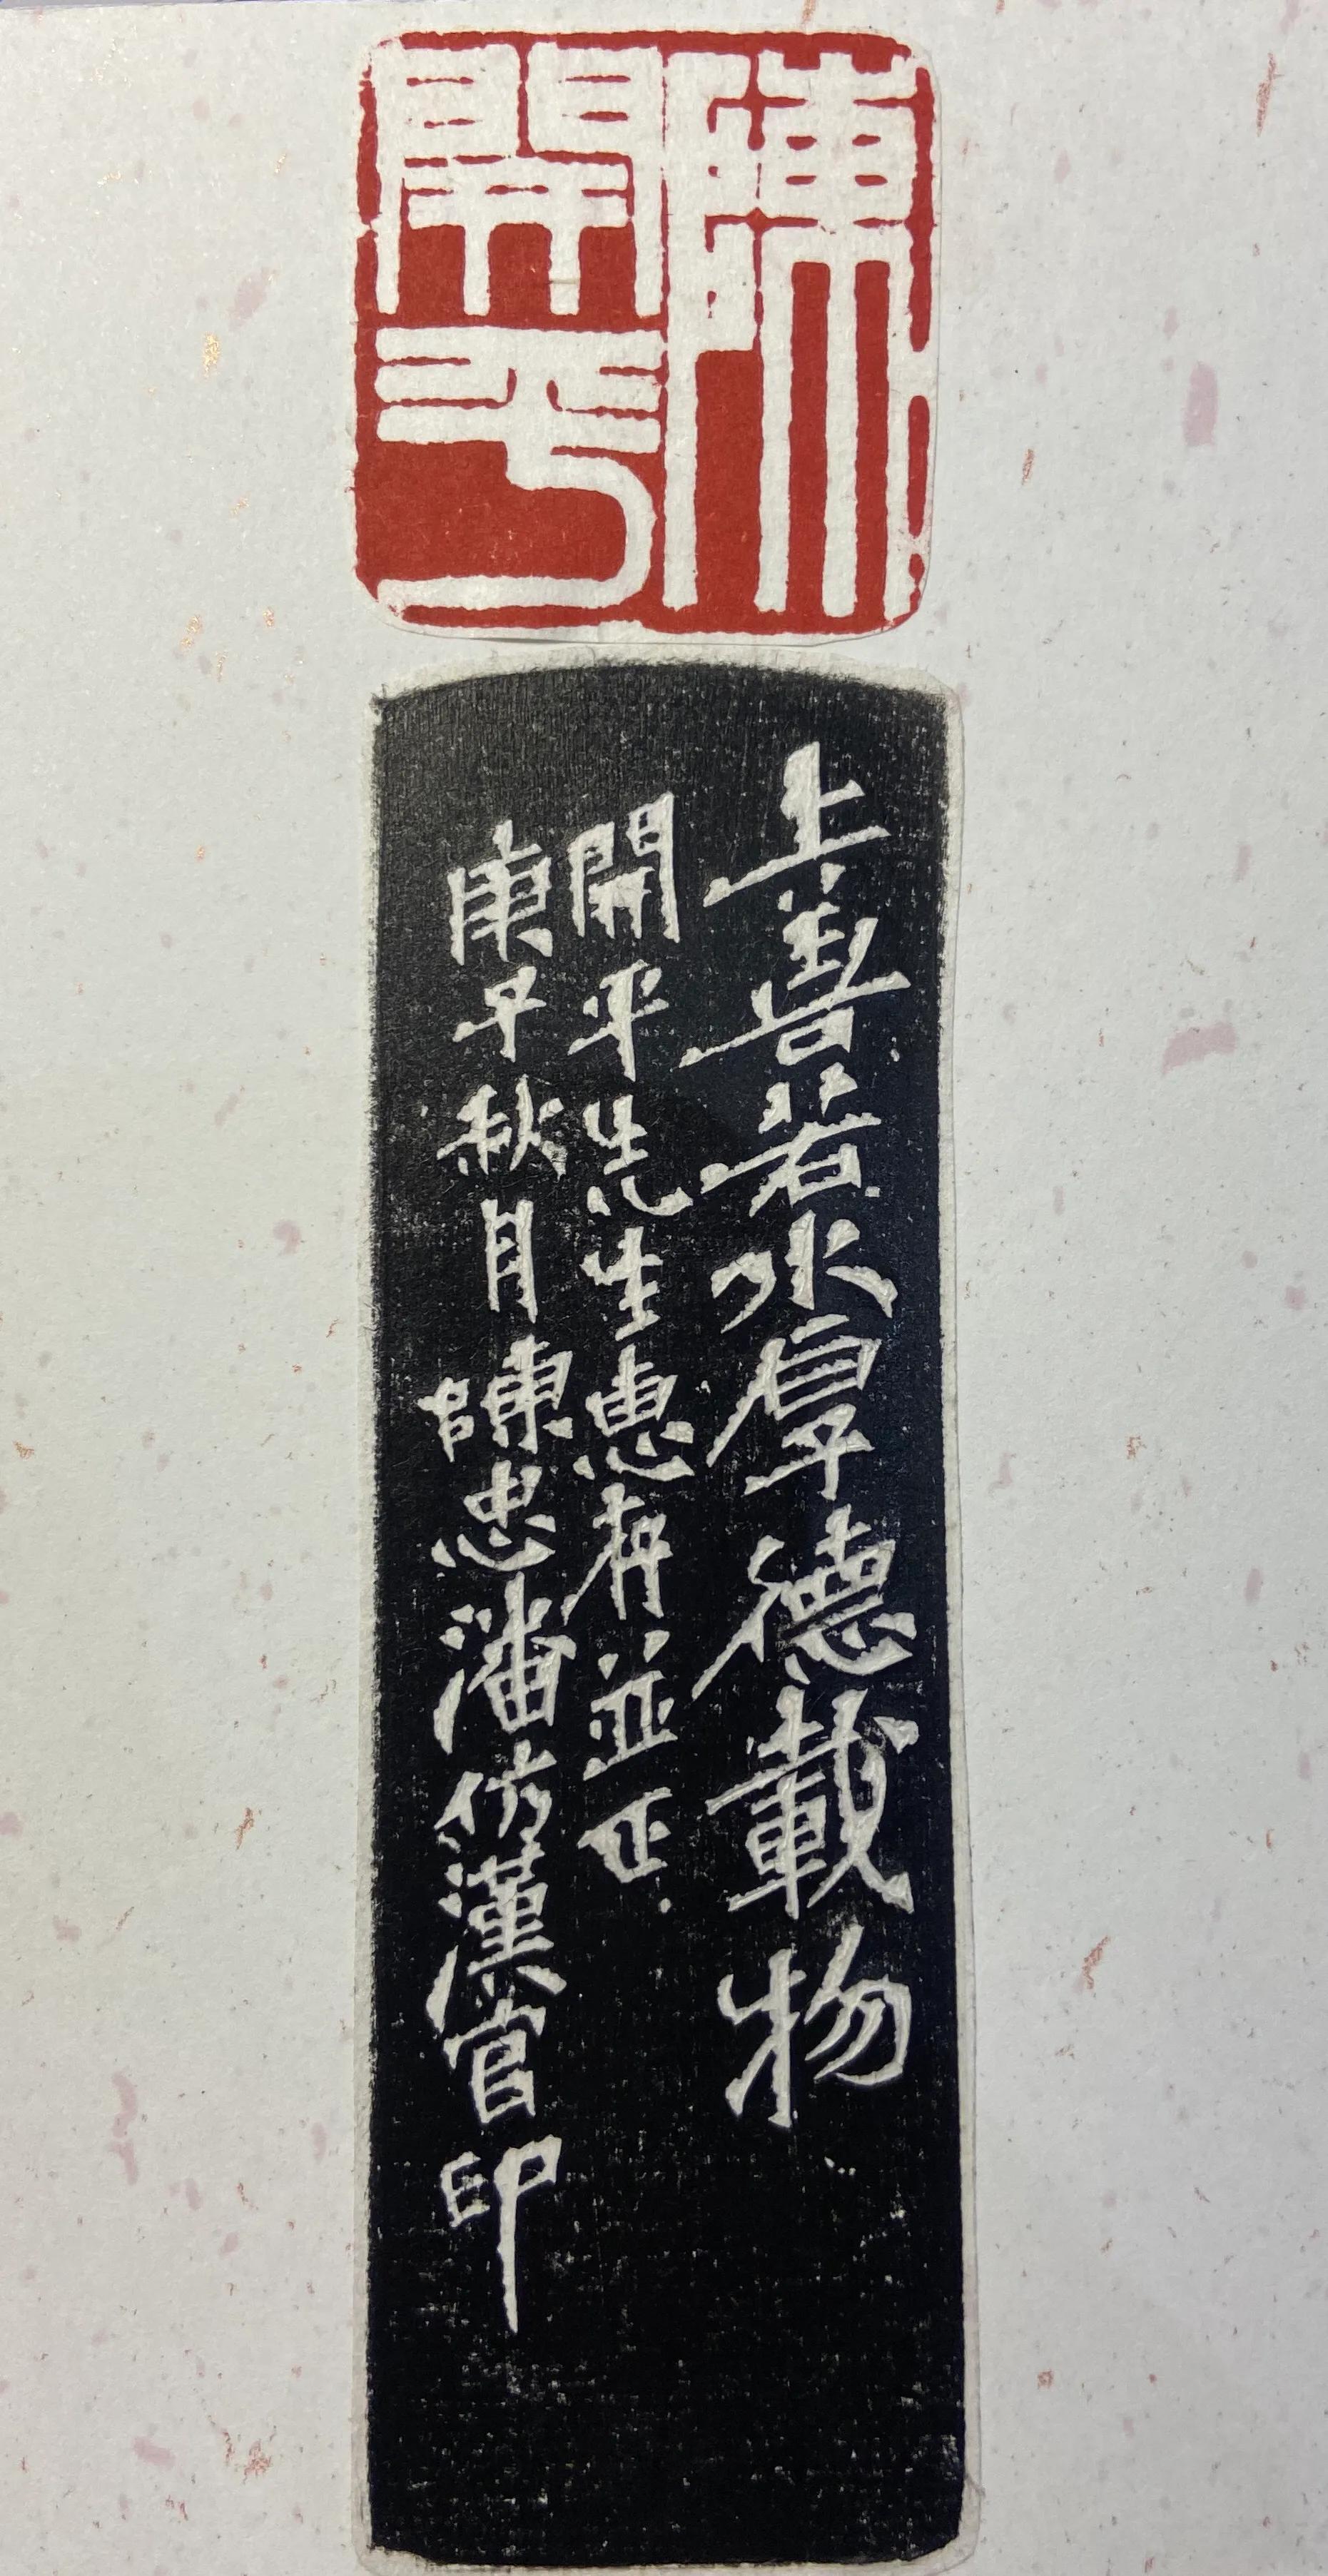 陳開平
上善若水厚德載物
開平先生惠存並正
庚子秋月陳忠潘仿漢官印